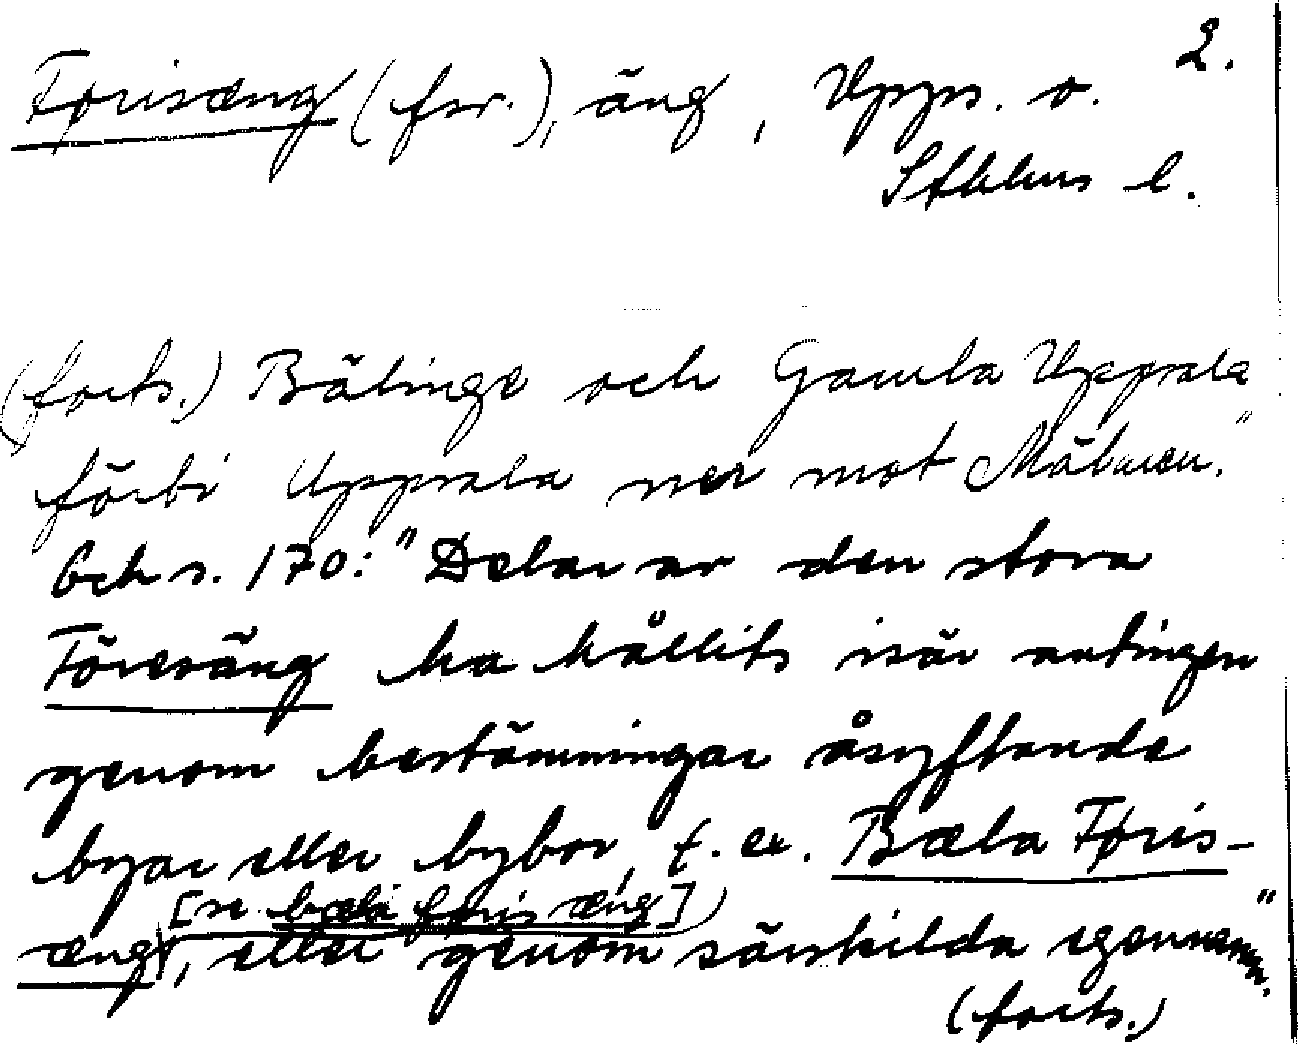 2.
Førisæng (fsv.), äng, Upps. o.
Sthlms l.
(forts.) Bälinge och Gamla Uppsala
förbi Uppsala ner mot Mälaren."
Och s. 170: "Delar av den stora
Föresäng ha hållits isär antingen
genom bestämningar åsyftande
byar eller bybor, t. ex. Bæla Føris-
[se bæla føris æng]
æng, eller genom särskilda egennamn."
(forts.)